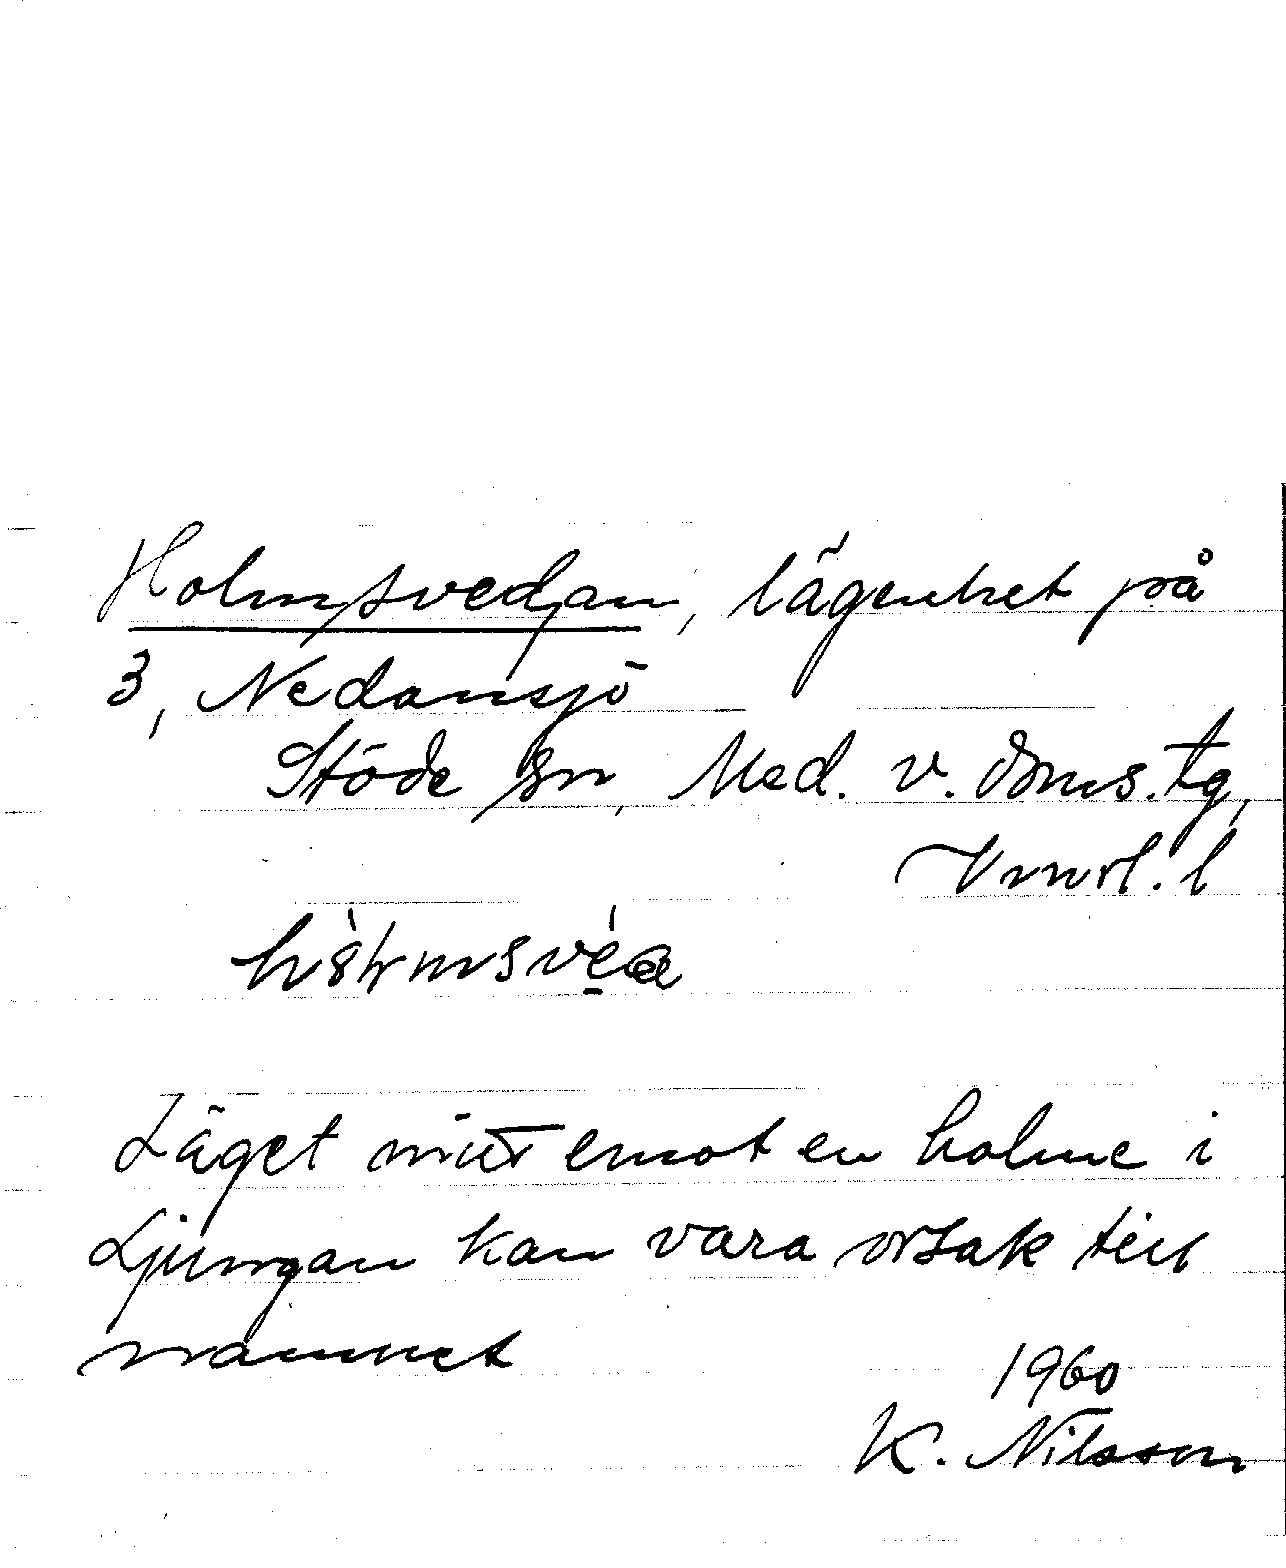 Holmsvedjan, lägenhet på
3, Nedansjö
Stöde sn, Med. v. doms. tg,
Vnrl. l
Läget mitt emot en holme i
Ljungan kan vara orsak till
namnet
1960
K. Nilsson